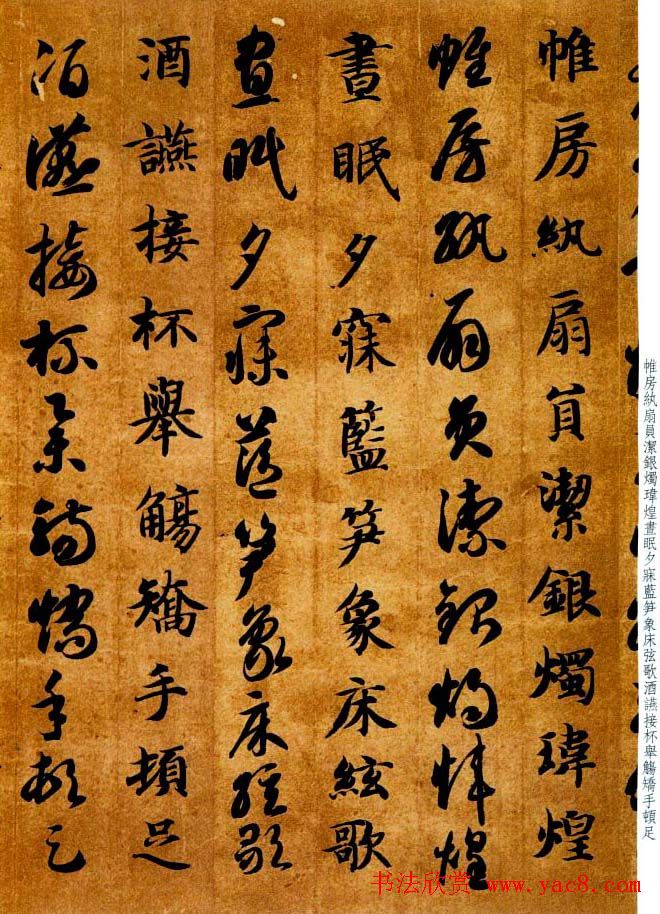 帷房紈扇員潔銀燭瑋煌晝眠夕寐藍笋象床弦歌酒讌接杯舉觴矯手頓足
帷房紈扇員潔銀燭瑋煌
帷房紈扇員潔銀燭煒煌
晝眠夕寐藍笋象床絃歌
晝眠夕寐藍笋象床絃歌
酒讌接杯舉觴矯手頓足
酒讌接杯舉觴矯手頓足
书法欣赏 www.yac8.com